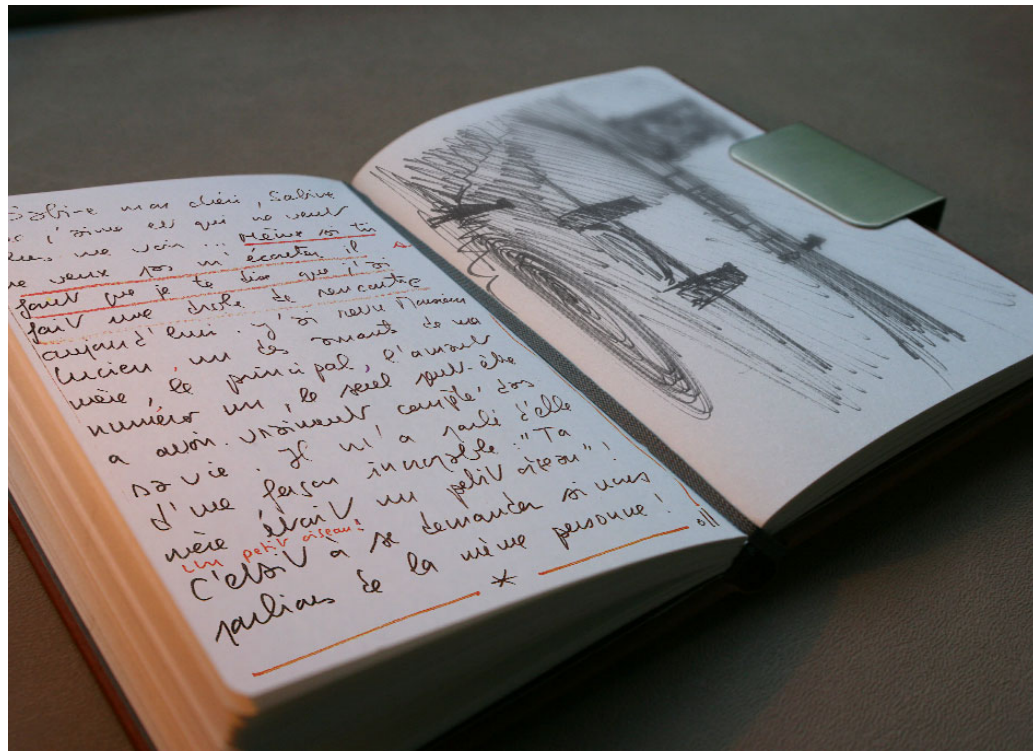 Sabine mon chéri, Sabine
que j'aime et qui ne veut
plus me voir... Même si tu
ne veux pas m'écouter, il
faut que je te dise que j'ai
fait une drôle de rencontre
aujourd'hui. J'ai revu Monsieur
Lucien, un des amants de ma
mère, le principal, l'amant
numéro un, le seul peut-être
à avoir vraiment compté dans
sa vie. Il m'a parlé d'elle
d'une façon incroyable : "Ta
mère était un petit oiseau" !
Un petit oiseau !
C'était à se demander si nous
parlions de la même personne !